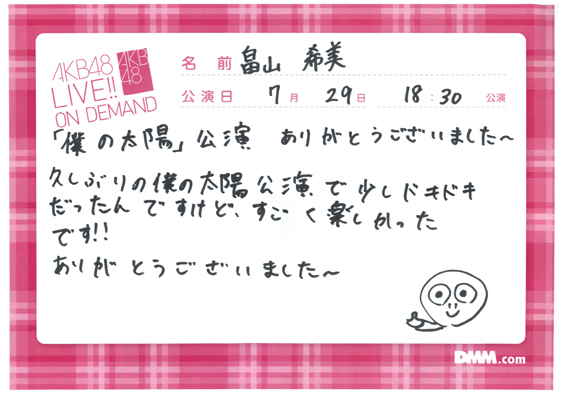 AKB48
LIVE!!
ON DEMAND
AKB
48
名前 畠山 希美
公演日 7月 29日 18:30 公演
「僕の太陽」公演 ありがとうございました〜
久しぶりの僕の太陽公演で少しドキドキ
だったんですけど、すごく楽しかった
です!!
ありがとうございました〜
DMM.com